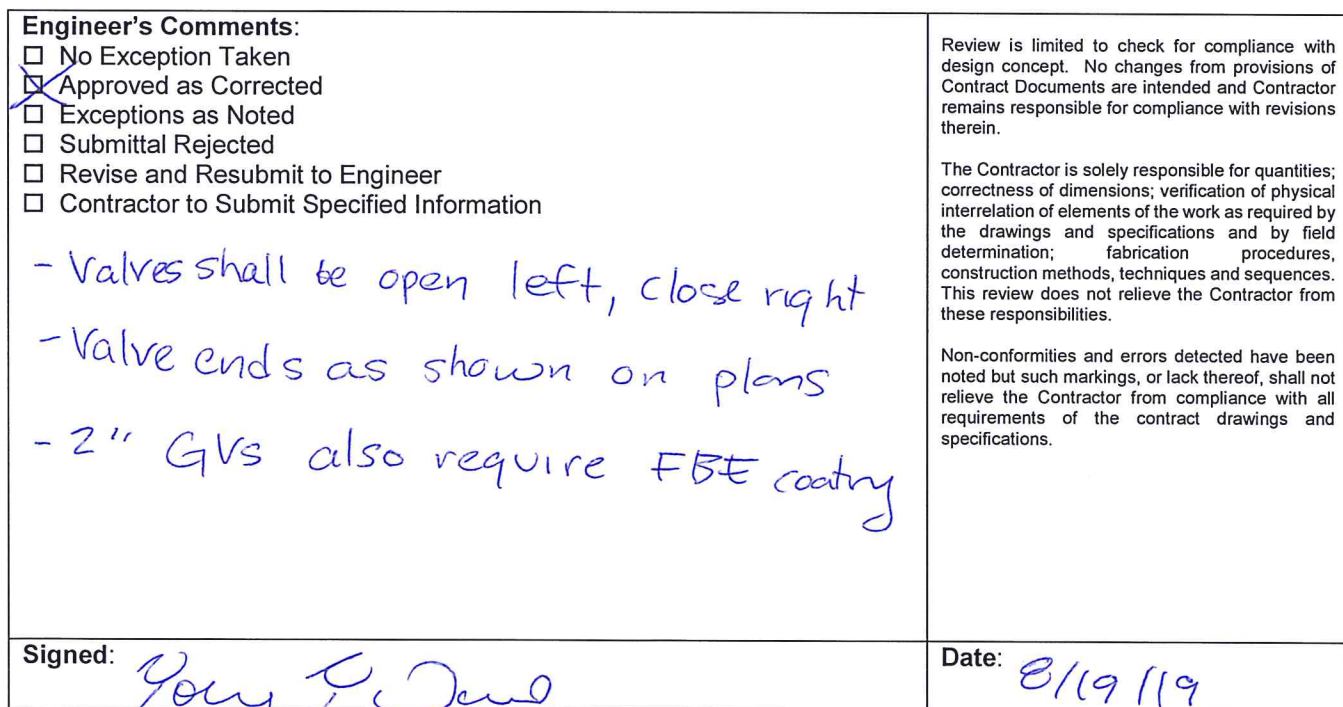 Engineer's Comments:
☐ No Exception Taken
☒ Approved as Corrected
☐ Exceptions as Noted
☐ Submittal Rejected
☐ Revise and Resubmit to Engineer
☐ Contractor to Submit Specified Information
- Valves shall be open left, close right
- Valve ends as shown on plans
- 2" GVs also require FBE coating
Review is limited to check for compliance with
design concept. No changes from provisions of
Contract Documents are intended and Contractor
remains responsible for compliance with revisions
therein.
The Contractor is solely responsible for quantities;
correctness of dimensions; verification of physical
interrelation of elements of the work as required by
the drawings and specifications and by field
determination; fabrication procedures,
construction methods, techniques and sequences.
This review does not relieve the Contractor from
these responsibilities.
Non-conformities and errors detected have been
noted but such markings, or lack thereof, shall not
relieve the Contractor from compliance with all
requirements of the contract drawings and
specifications.
Signed:
Date: 8/19/19